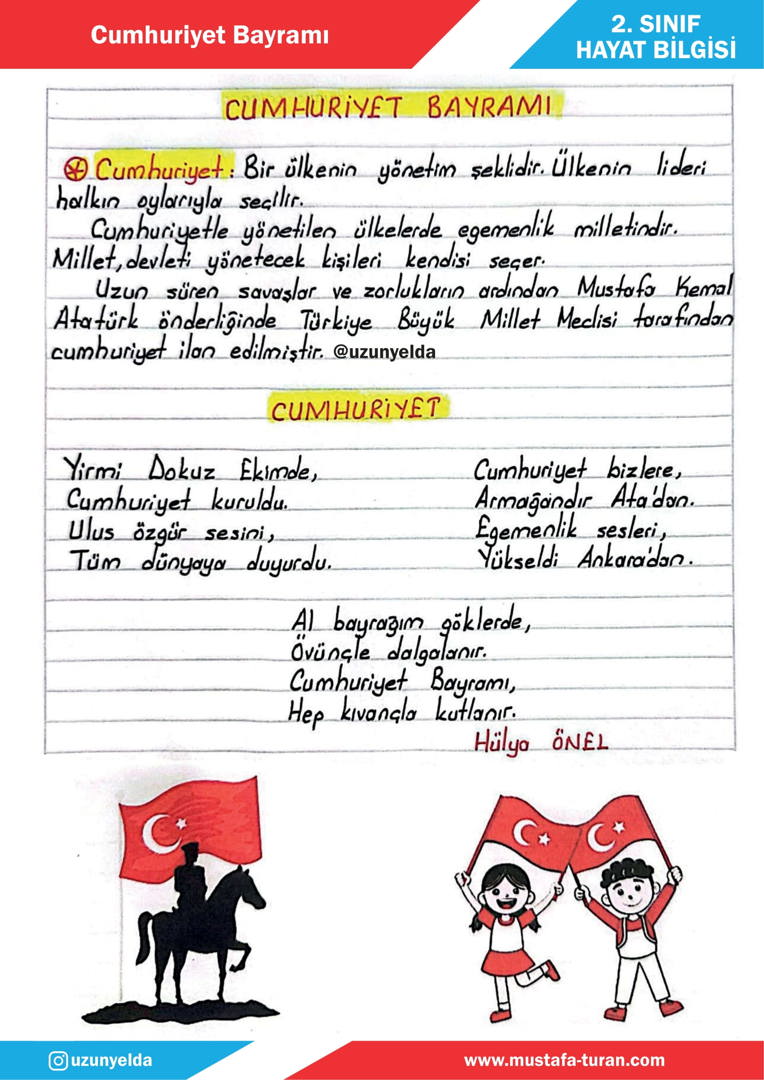 Cumhuriyet Bayramı
2. SINIF
HAYAT BİLGİSİ
CUMHURİYET BAYRAMI
Cumhuriyet: Bir ülkenin yönetim şeklidir. Ülkenin lideri
halkın oylarıyla seçilir.
Cumhuriyetle yönetilen ülkelerde egemenlik milletindir.
Millet, devleti yönetecek kişileri kendisi seçer.
Uzun süren savaşlar ve zorlukların ardından Mustafa Kemal
Atatürk önderliğinde Türkiye Büyük Millet Meclisi tarafından
cumhuriyet ilan edilmiştir. @uzunyelda
CUMHURİYET
Yirmi Dokuz Ekimde,
Cumhuriyet kuruldu.
Ulus özgür sesini,
Tüm dünyaya duyurdu.
Cumhuriyet bizlere,
Armağandır Ata'dan.
Egemenlik sesleri,
Yükseldi Ankara'dan.
Al bayrağım göklerde,
Övünçle dalgalanır.
Cumhuriyet Bayramı,
Hep kıvançla kutlanır.
Hülya ÖNEL
uzunyelda
www.mustafa-turan.com